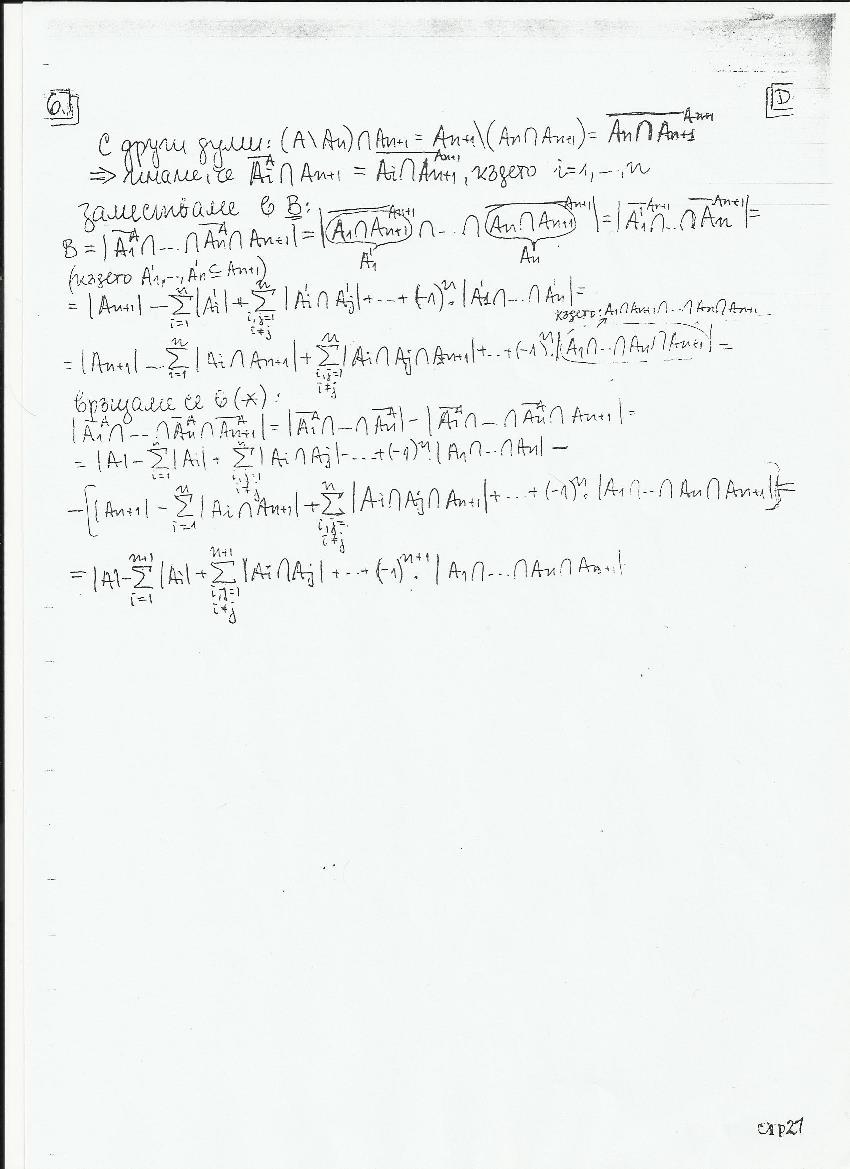 6. D
С други думи: (A \ An) ∩ An+1 = An+1 \ (An ∩ An+1) = \overline{An ∩ An+1}^{An+1}
⇒ имаме, че \overline{Ai}^{A} ∩ An+1 = \overline{Ai ∩ An+1}^{An+1}, където i=1,-.,n
заместваме в B:
B = |\overline{A1}^{A} ∩ ... ∩ \overline{An}^{A} ∩ An+1| = |\overline{(A1 ∩ An+1)}^{An+1} ∩ .. ∩ \overline{(An ∩ An+1)}^{An+1}| = |\overline{A1'}^{An+1} ∩ .. ∩ \overline{An'}^{An+1}| =
A1' An'
(където A1',-.,An' ⊆ An+1)
= |An+1| - \sum_{i=1}^{n} |Ai'| + \sum_{i,j=1, i≠j}^{n} |Ai' ∩ Aj'| + ... + (-1)^n . |A1' ∩ ... ∩ An'| =
където: A1 ∩ An+1 ∩ ... ∩ An ∩ An+1
= |An+1| - \sum_{i=1}^{n} |Ai ∩ An+1| + \sum_{i,j=1, i≠j}^{n} |Ai ∩ Aj ∩ An+1| + ... + (-1)^n . |A1 ∩ ... ∩ An ∩ An+1| =
връщаме се в (*):
|\overline{A1}^{A} ∩ ... ∩ \overline{An}^{A} ∩ \overline{An+1}^{A}| = |\overline{A1}^{A} ∩ -- ∩ \overline{An}^{A}| - |\overline{A1}^{A} ∩ -- ∩ \overline{An}^{A} ∩ An+1| =
= |A| - \sum_{i=1}^{n} |Ai| + \sum_{i,j=1, i≠j}^{n} |Ai ∩ Aj| - ... + (-1)^n . |A1 ∩ ... ∩ An| -
- [|An+1| - \sum_{i=1}^{n} |Ai ∩ An+1| + \sum_{i,j=, i≠j}^{n} |Ai ∩ Aj ∩ An+1| + ... + (-1)^n . |A1 ∩ ... ∩ An ∩ An+1|] =
= |A| - \sum_{i=1}^{n+1} |Ai| + \sum_{i,j=1, i≠j}^{n+1} |Ai ∩ Aj| + ... + (-1)^{n+1} . |A1 ∩ ... ∩ An ∩ An+1|
стр27